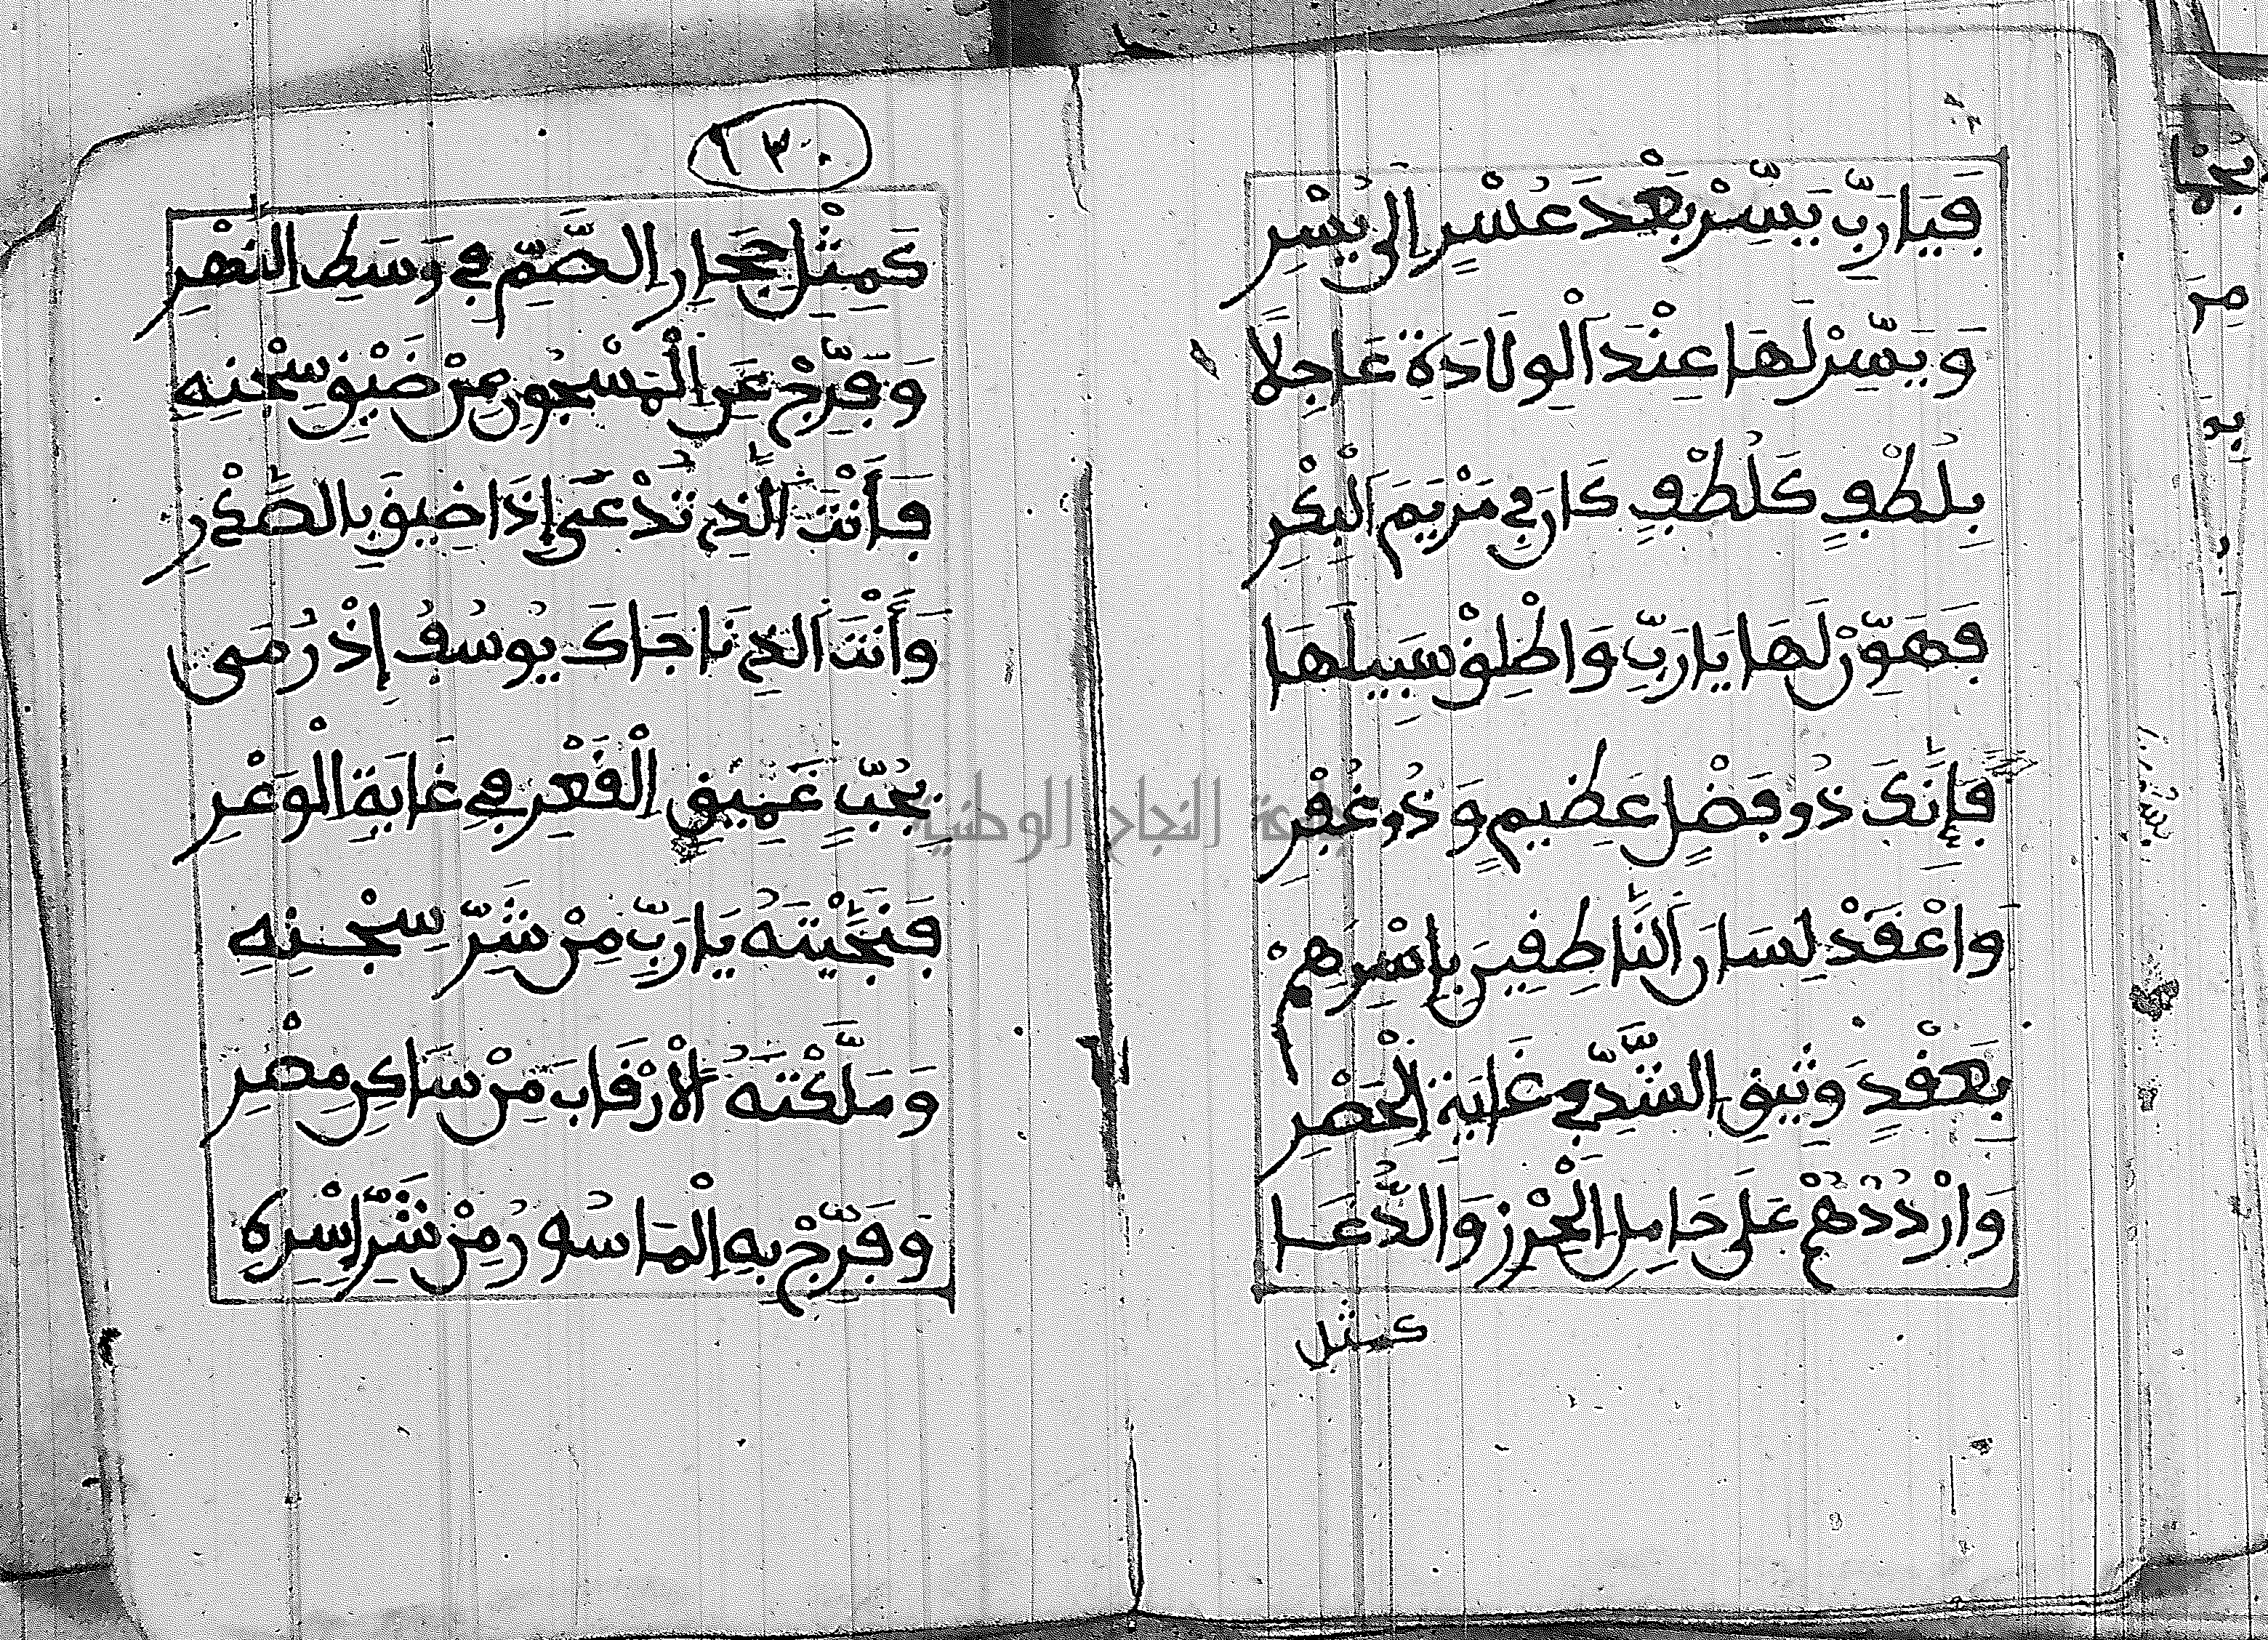 فَيَا رَبِّ يَسِّرْ بَعْدَ عُسْرٍ إِلَى يُسْرِ
وَيَسِّرْ لَهَا عِنْدَ الْوِلَادَةِ عَاجِلًا
بِلُطْفٍ كَلُطْفٍ كَانَ فِي مَرْيَمَ الْبِكْرِ
فَهَوِّنْ لَهَا يَا رَبِّ وَاطْلِقْ سَبِيلَهَا
فَإِنَّكَ ذُو فَضْلٍ عَظِيمٍ وَذُو غُفْرِ
وَاعْقَدْ لِسَانَ النَّاطِقِينَ بِأَسْرِهِمْ
بِعَقْدٍ وَثِيقِ الشَّدِّ فِي غَايَةِ الْحَصْرِ
وَارْدُدْهُمْ عَلَى حَامِلِ الْحِرْزِ وَالدُّعَا
كمثل
١٣٠
كَمِثْلِ حِجَارِ الصَّمِّ فِي وَسَطِ النَّهْرِ
وَفَرِّجْ عَنِ الْمَسْجُونِ مِنْ ضَيْقِ سِجْنِهِ
فَأَنْتَ الَّذِي تُدْعَى إِذَا ضِيقَ بِالصَّدْرِ
وَأَنْتَ الَّذِي نَاجَاكَ يُوسُفُ إِذْ رُمَى
بِجُبٍّ عَمِيقِ الْقَعْرِ فِي غَايَةِ الْوَعْرِ
فَنَجَّيْتَهُ يَا رَبِّ مِنْ شَرِّ سِجْنِهِ
وَمَلَّكْتَهُ الْأَرْقَابَ مِنْ سَاكِنِ مِصْرِ
وَفَرِّجْ بِهِ الْمَاسُورُ مِنْ شَرِّ أَسْرِهِ
جامعة النجاح الوطنية